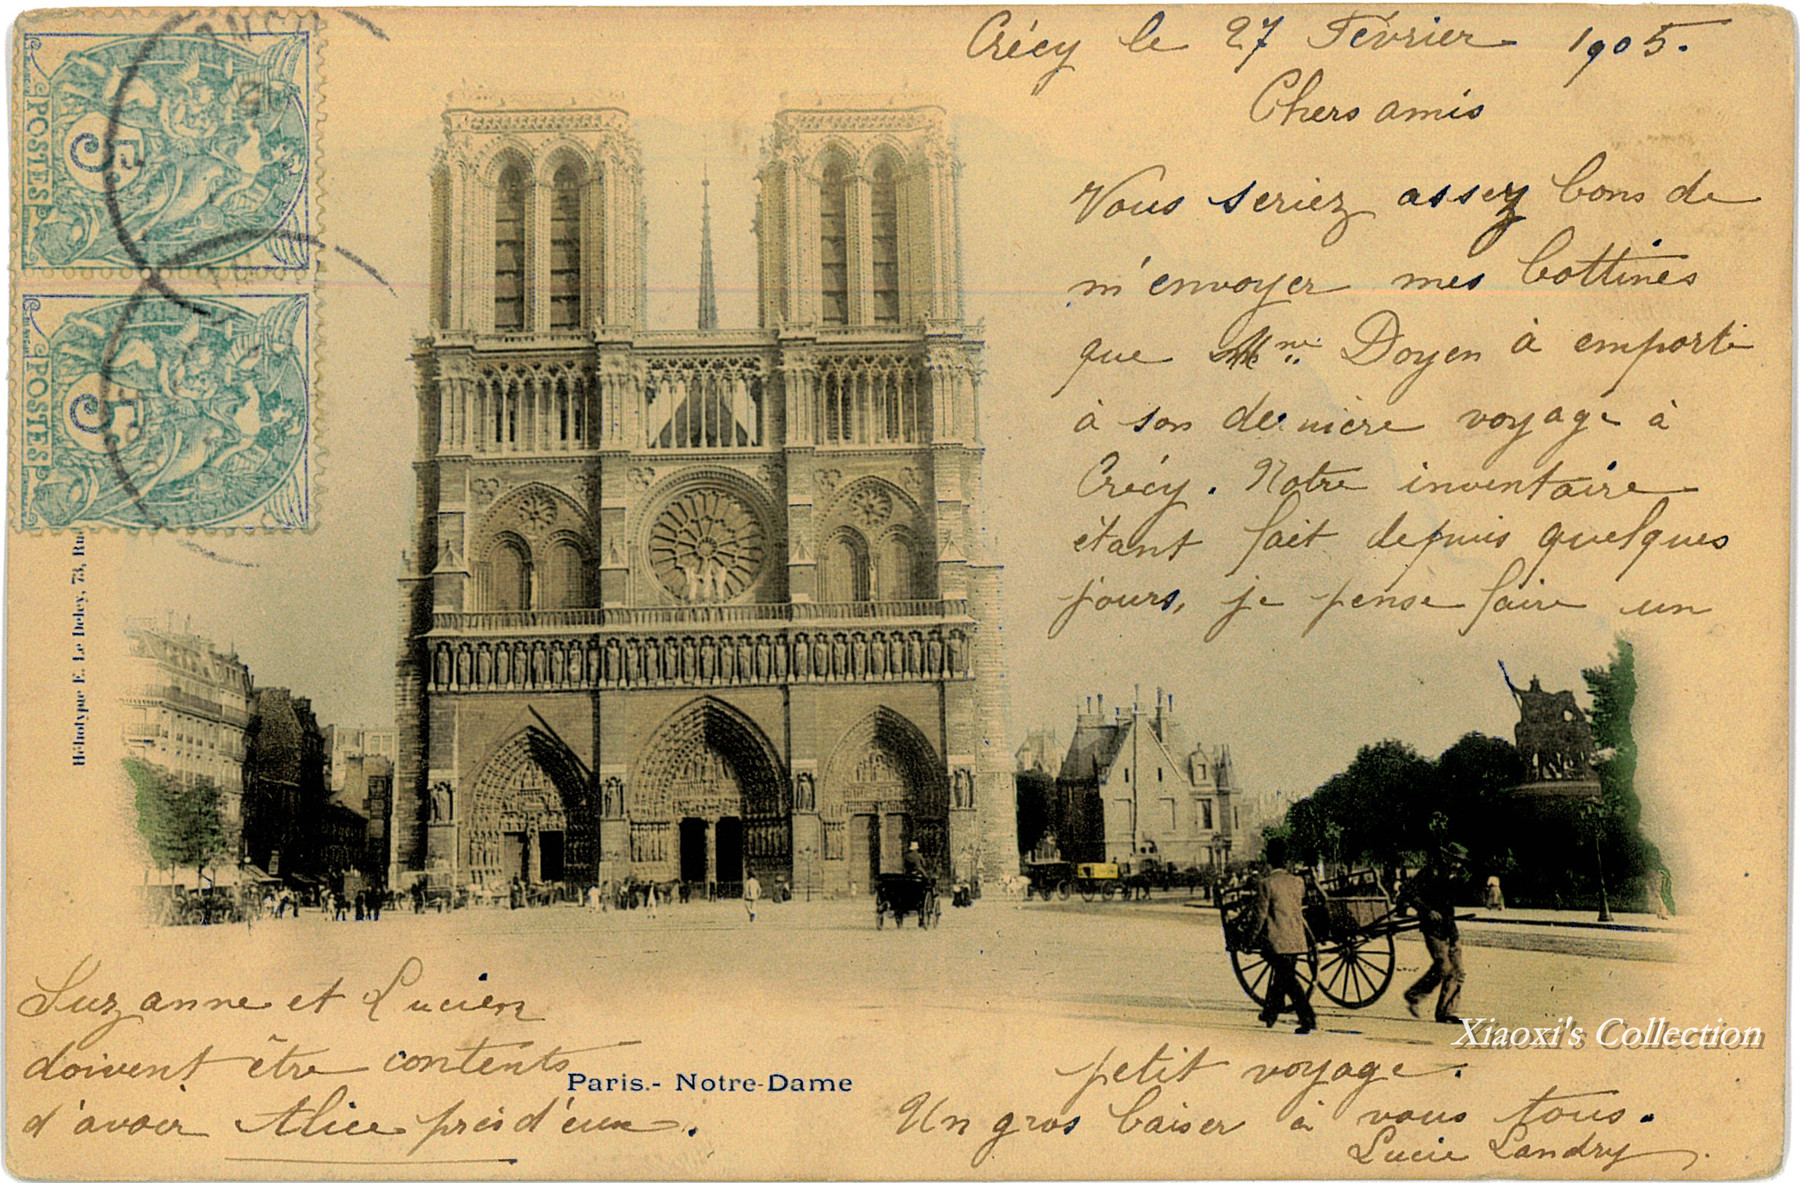 Crécy le 27 Février 1905.
Chers amis
Vous seriez assez bons de
m'envoyer mes bottines
que Mme Doyen à emporté
à son dernière voyage à
Crécy. Notre inventaire
étant fait depuis quelques
jours, je pense faire un
petit voyage.
Un gros baiser à vous tous.
Lucie Landry
Suzanne et Lucien
doivent être contents
d'avoir Alice près d'eux.
Paris.- Notre-Dame
POSTES
5
POSTES
5
Héliotypie E. Le Deley, 73, Ru
Xiaoxi's Collection